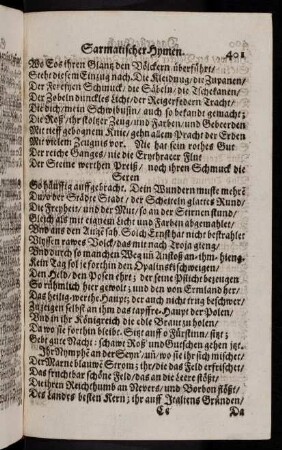 Sarmatischer Hymen. 401
Wo Eos ihren Glantz den Völckern überführt/
Steht diesem Einzug nach. Die Kleidung; die Zupanen/
Der Ferefyen Schmuck/ die Säbeln/ die Tschekanen/
Der Zobeln dunckles Licht/ der Reigerfedern Tracht/
Die dich/ mein Schwibußin/ auch so bekandt gemacht;
Die Roß/ ihr stoltzer Zeug/ und Farben/ und Geberden
Mit tieff gebognem Knie/ gehn allem Pracht der Erden
Mit vielem Zeugnis vor. Nie hat sein rothes Gut
Der reiche Ganges/ nie die Erythraeer Flut
Der Steine werthen Preiß/ noch ihren Schmuck die
Seren
So häuffig auffgebracht. Dein Wundern muste mehrē
Du/ der Städte Stadt/ der Scheiteln glattes Rund/
Die Freyheit/ und der Mut/ so an der Stirnen stund/
Gleich als mit eignem Licht und Farben abgemahlet/
Und aus den Augē sah. Solch Ernst hat nicht bestrahlet
Ulyssen rawes Volck/ das mit nach Troja gieng/
Und durch so manchen Weg uñ Anstoß an-ihm-hieng.
Kein Tag sol je forthin den Opalinski schweigen/
Den Held/ der den Posen ehrt; der seine Pflicht bezeugen
So rühmlich hier gewolt; und den von Ermland her/
Das heilig-werthe Haupt; der auch nicht trug beschwer/
Zu zeigen selbst an ihm das tapffre-Haupt der Polen/
Und in ihr Königreich die edle Braut zu holen/
Da wo sie forthin bleibe. Sitz auff o Fürstinn/ sitz;
Gebt gute Nacht: schawt Roß und Gutschen gehen itzt.
Ihr Nymphē an der Seyn'/ uñ/ wo sie ihr sich mischet/
Der Marne blauwē Strom; ihr/ die das Feld erfrischet/
Das fruchtbar schöne Feld/ das an die Oere stößt/
Die ihren Reichthumb an Nevers/ und Borbon flößt/
Des Landes besten Kern; ihr auff Italiens Gründen/
Cc Da